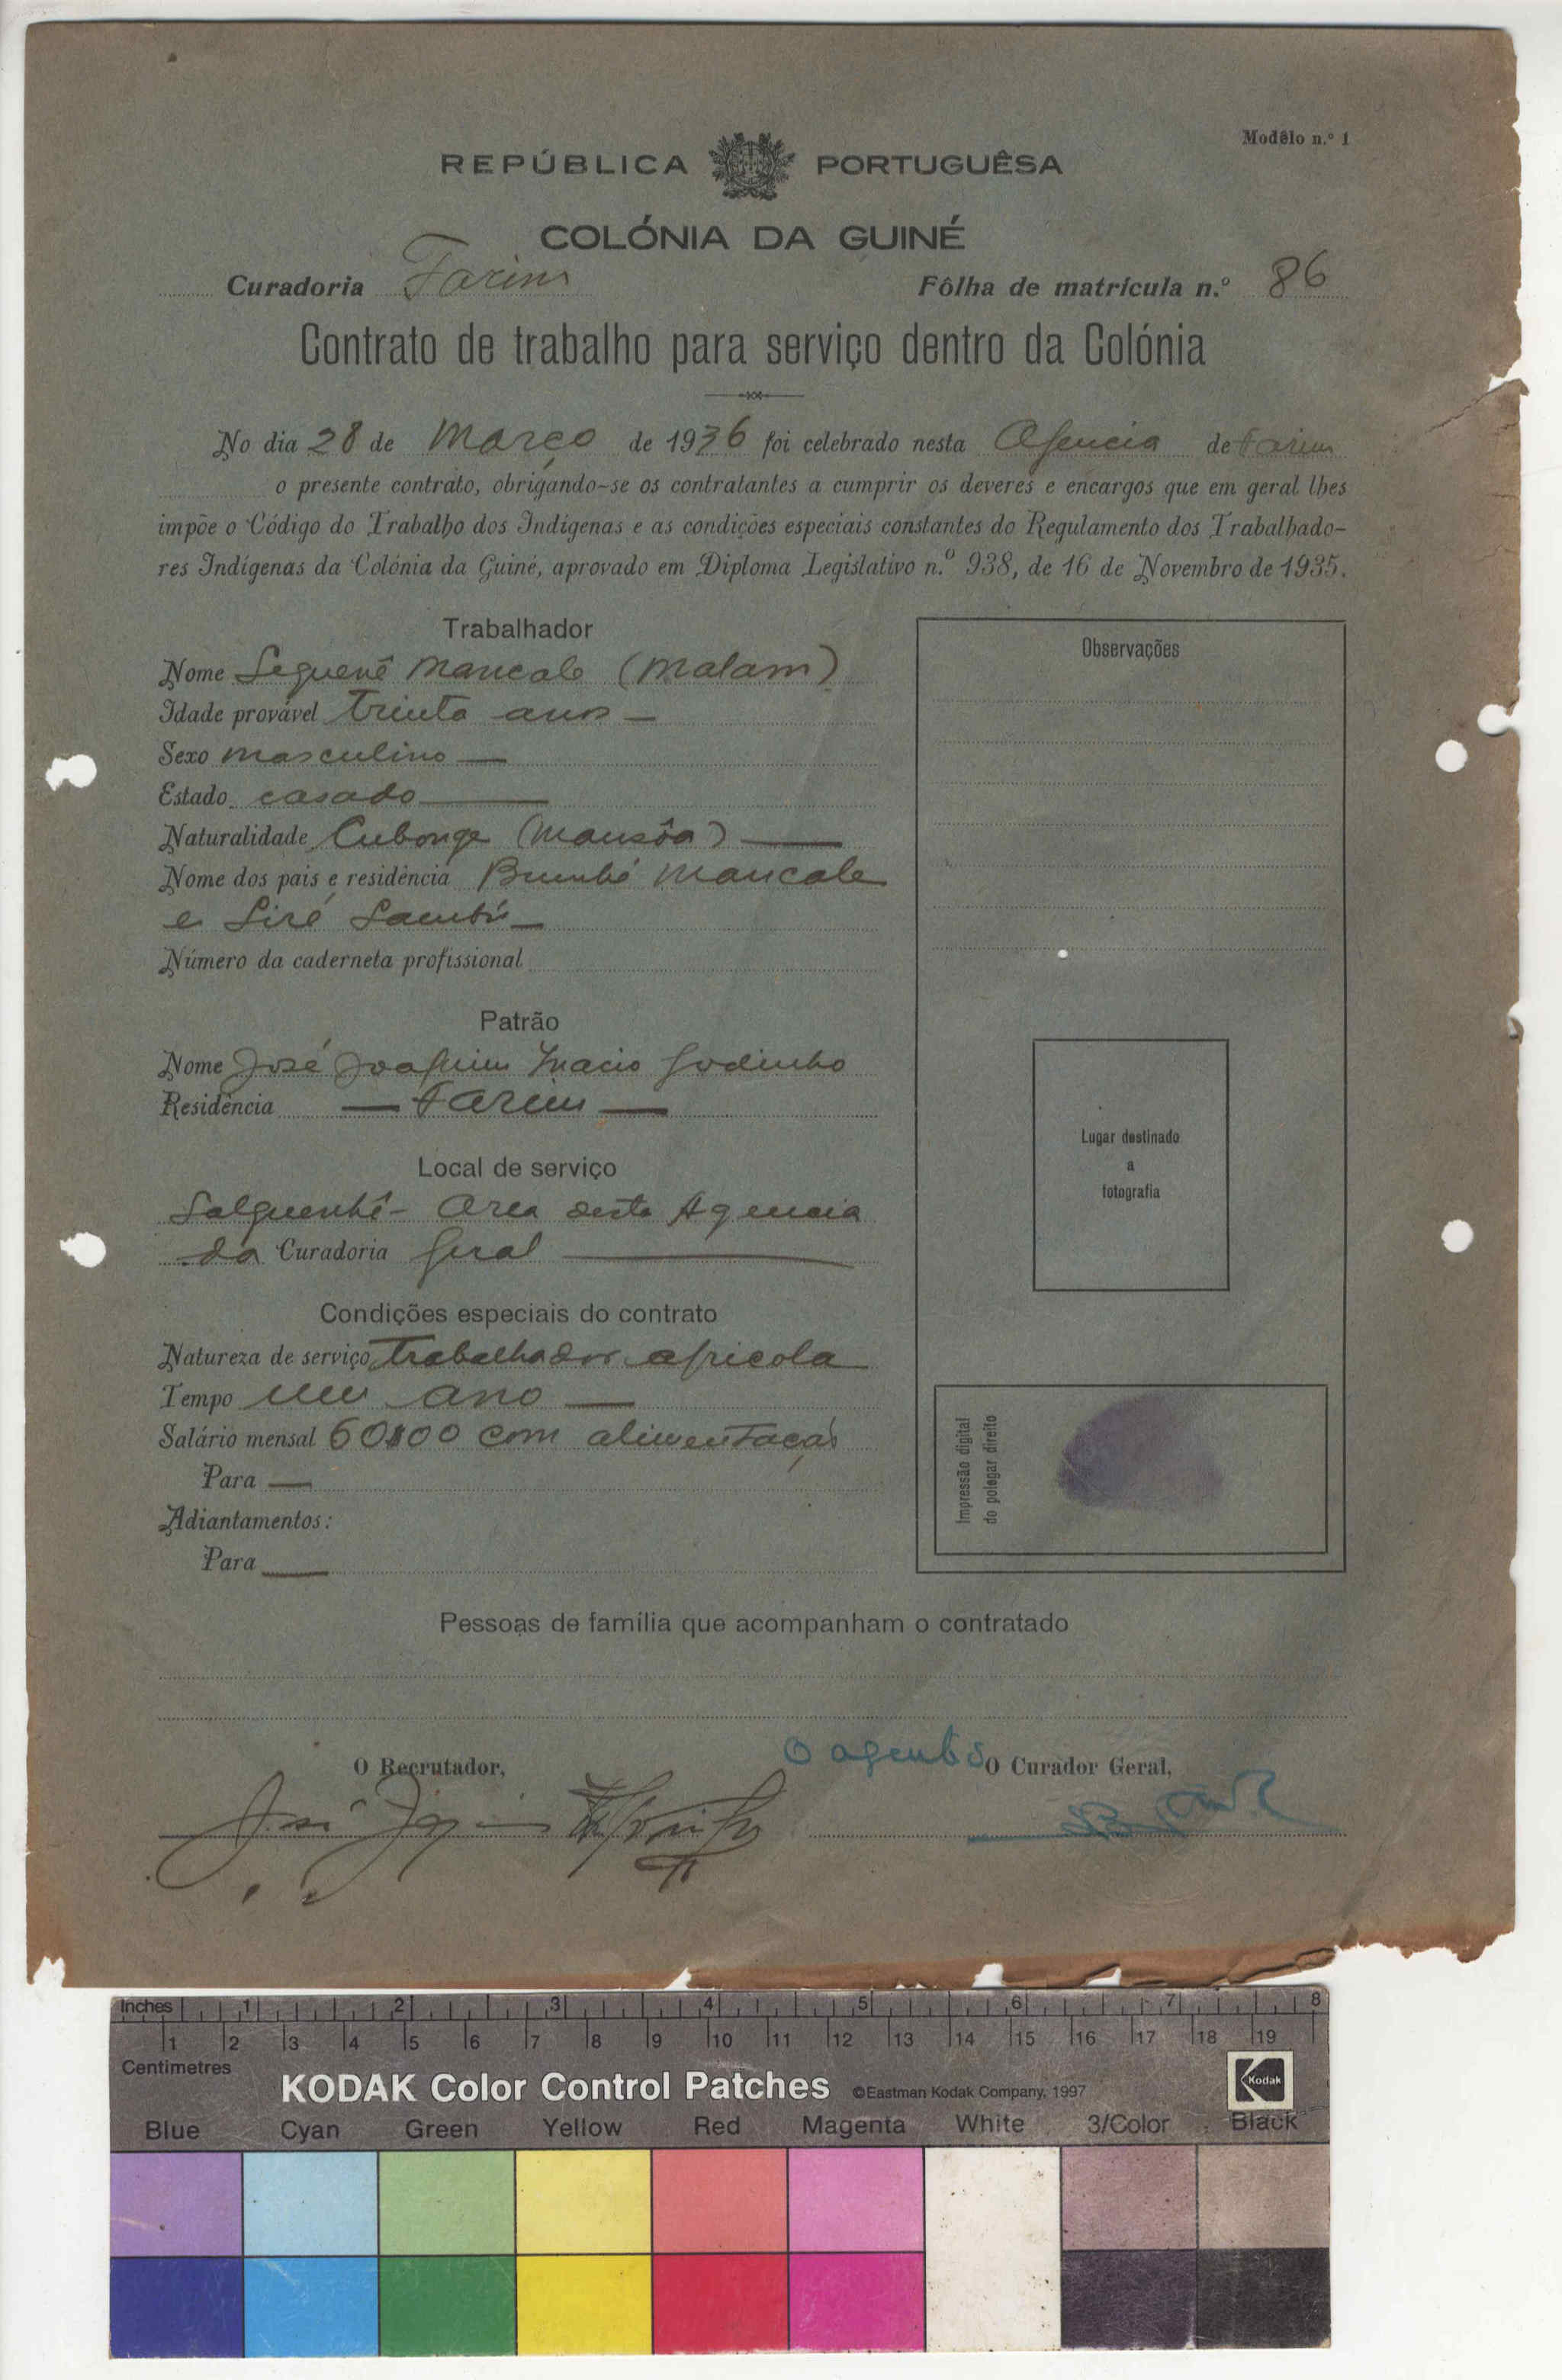 Modêlo n.º 1
REPÚBLICA PORTUGUÊSA
COLÓNIA DA GUINÉ
Curadoria Farim Fôlha de matrícula n.º 86
Contrato de trabalho para serviço dentro da Colónia
No dia 28 de Março de 1936 foi celebrado nesta Agencia de Farim
o presente contrato, obrigando-se os contratantes a cumprir os deveres e encargos que em geral lhes
impõe o Código do Trabalho dos Indígenas e as condições especiais constantes do Regulamento dos Trabalhado-
res Indígenas da Colónia da Guiné, aprovado em Diploma Legislativo n.º 938, de 16 de Novembro de 1935.
Trabalhador
Nome Seguenê Mancale (Malam)
Idade provável Trinta anos —
Sexo masculino —
Estado casado —
Naturalidade Cubonge (Mansôa) —
Nome dos pais e residência Mancale
e Siré
Número da caderneta profissional
Patrão
Nome José Joaquim Inacio Godinho
Residência — Farim —
Local de serviço
Salquenhê - Area desta Agencia
da Curadoria Geral —
Condições especiais do contrato
Natureza de serviço Trabalhador agricola
Tempo um ano —
Salário mensal 60$00 com alimentação
Para —
Adiantamentos:
Para —
Observações
Lugar destinado
a
fotografia
Impressão digital
do polegar direito
Pessoas de família que acompanham o contratado
O Recrutador,
O agente do O Curador Geral,
José Joaquim
Inches 1 2 3 4 5 6 7 8
1 2 3 4 5 6 7 8 9 10 11 12 13 14 15 16 17 18 19
Centimetres
KODAK Color Control Patches ©Eastman Kodak Company, 1997 Kodak
Blue Cyan Green Yellow Red Magenta White 3/Color Black